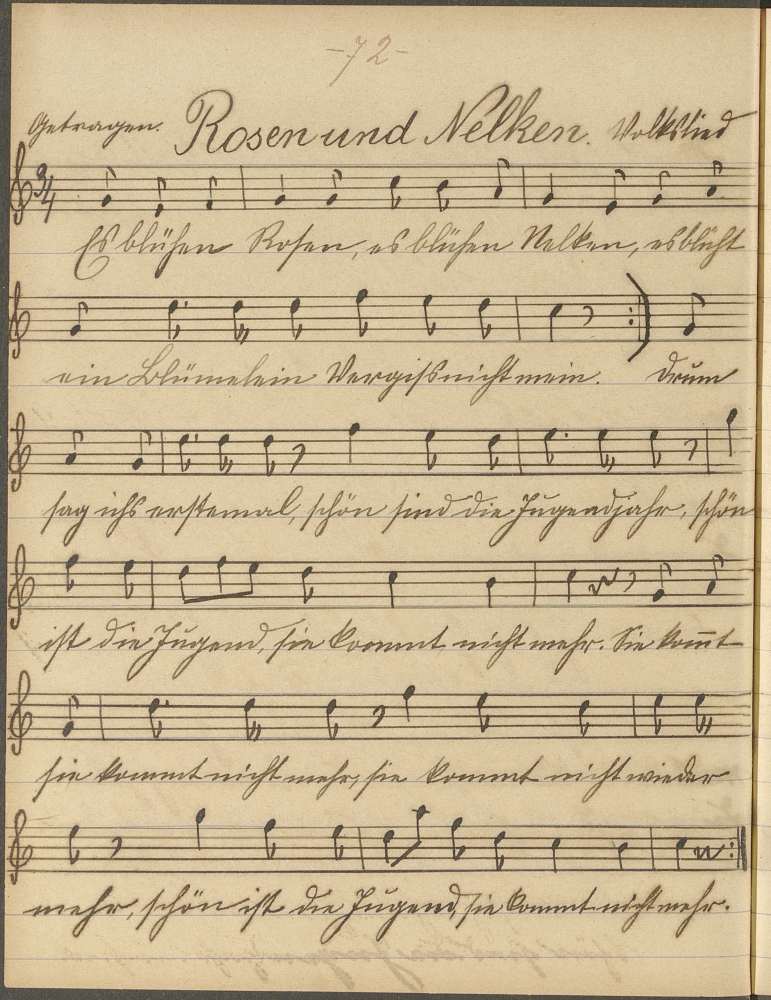 -72-
Getragen. Rosen und Nelken. Volkslied
Es blühen Rosen, es blühen Nelken, es blüht
ein Blümelein Vergißnichtmein. Drum
sag ichs erstemal, schön sind die Jugendjahr, schön
ist die Jugend, sie kommt nicht mehr. Sie kom̄t
sie kommt nicht mehr, sie kommt nicht wieder
mehr, schön ist die Jugend, sie kommt nicht mehr.